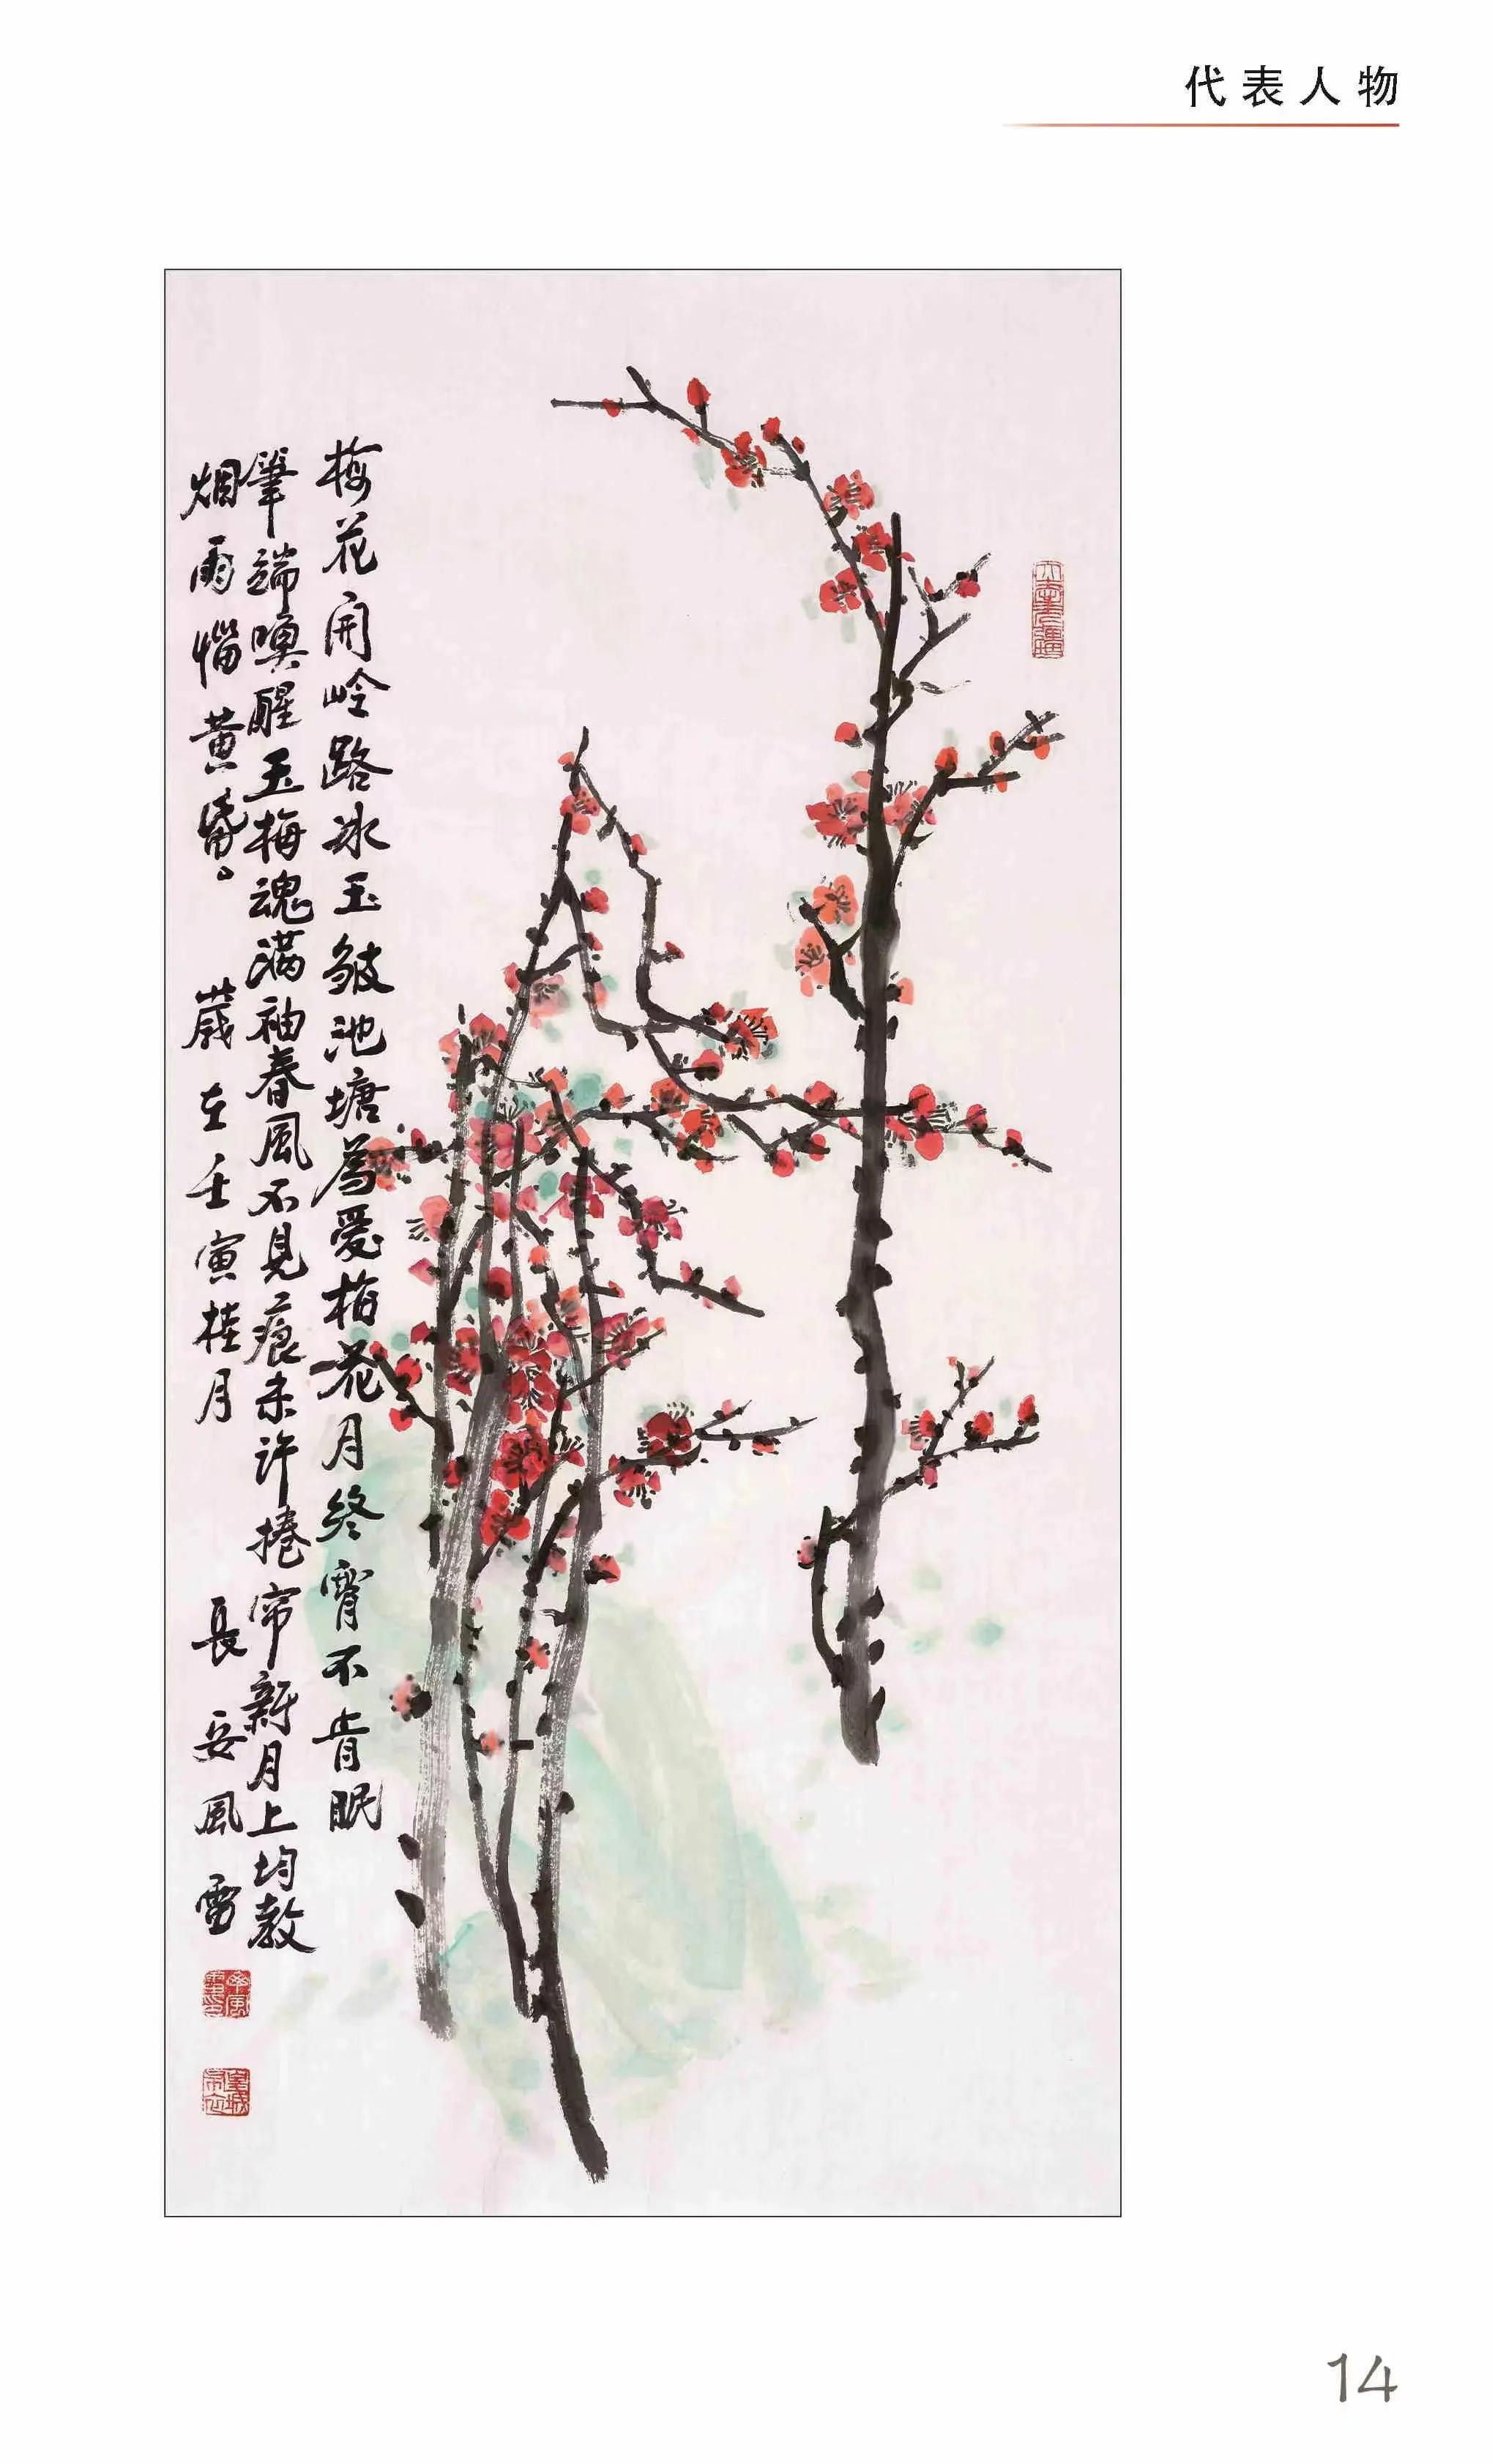 代表人物
梅花开岭路冰玉皱池塘為爱梅花月终宵不肯眠
筆端喚醒玉梅魂满袖春風不見痕未许捲帘新月上均教
烟雨惱黄昏。 歲在壬寅桂月 長安風雪
14